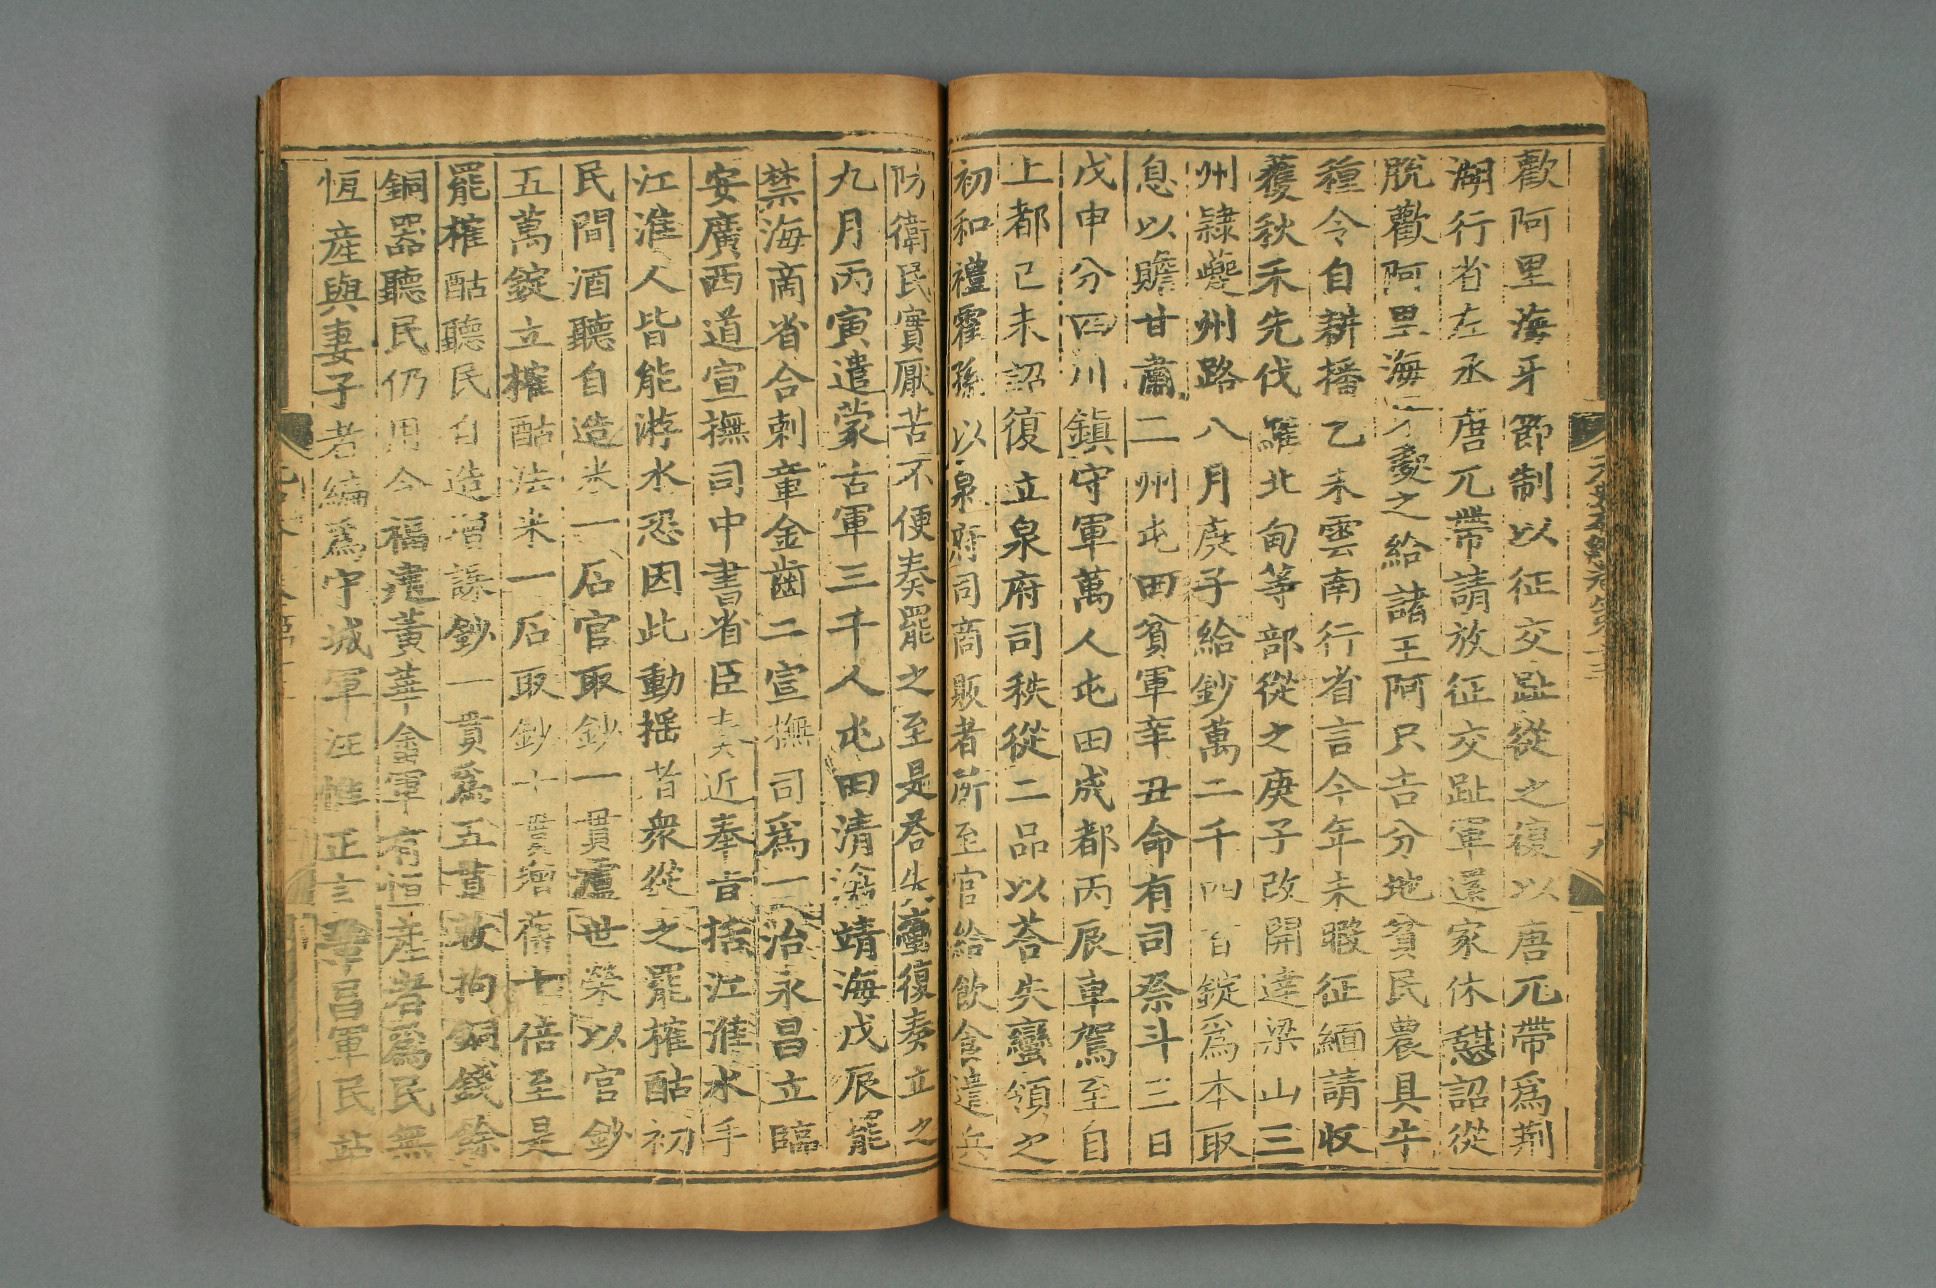 歡阿里海牙節制以征交趾從之復以唐兀帶爲荆
湖行省左丞唐兀帶請放征交趾軍還家休憇詔從
脫歡阿里海牙處之給諸王阿只吉分地貧民農具牛
種令自耕播乙未雲南行省言今年未暇征緬請收
穫秋禾先伐羅北甸等部從之庚子改開達梁山三
州隸夔州路八月庚子給鈔萬二千四百錠爲本取
息以贍甘肅二州屯田貧軍辛丑命有司祭斗三日
戊申分四川鎮守軍萬人屯田成都丙辰車駕至自
上都己未詔復立泉府司秩從二品以荅失蠻領之
初和禮霍孫以泉府司商販者所至官給飲食遣兵
防衛民實厭苦不便奏罷之至是荅失蠻復奏立之
九月丙寅遣蒙古軍三千人屯田清滄靖海戊辰罷
禁海商省合剌章金齒二宣撫司爲一治永昌立臨
安廣西道宣撫司中書省臣奏近奉旨括江淮水手
江淮人皆能游水恐因此動摇者衆從之罷榷酤初
民間酒聽自造米一石官取鈔一貫盧世榮以官鈔
五萬錠立榷酤法米一石取鈔十貫增舊十倍至是
罷榷酤聽民自造增課鈔一貫爲五貫敕拘銅錢餘
銅器聽民仍用令福建黃華畬軍有恒産者爲民無
恆産與妻子者編爲守城軍汪惟正言鞏昌軍民站